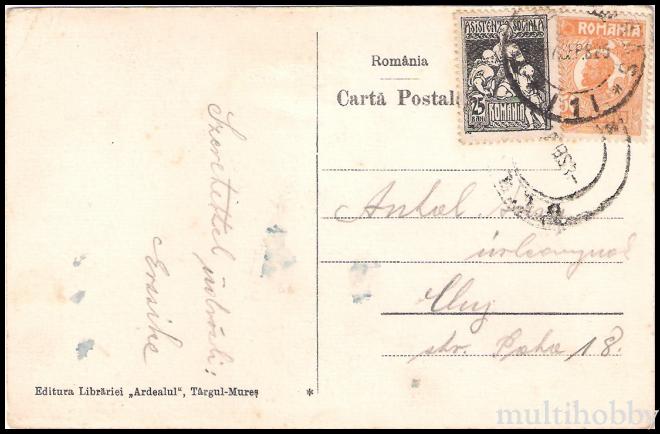 România
Cartă Postală
ASISTENȚA SOCIALA
25
BANI
ROMANIA
ROMANIA
Szeretettel üdvözli:
Erzsike
Antal
úrleánynak
Cluj
str. 18.
Editura Librăriei „Ardealul“, Târgul-Mureș
*
multihobby